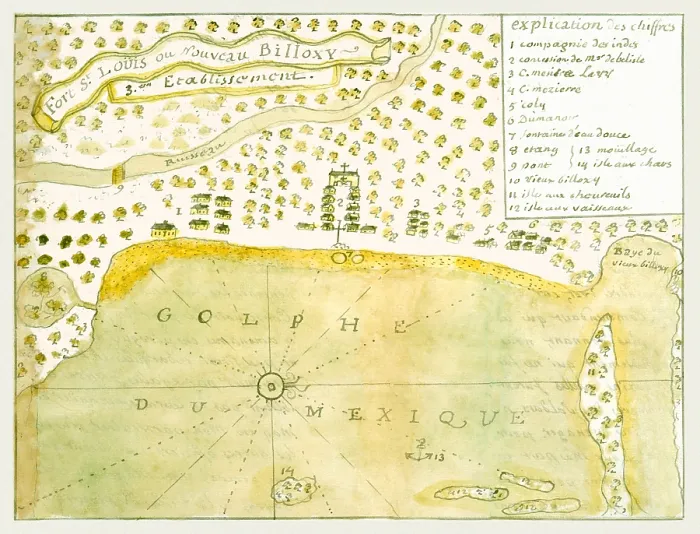 Fort St Louis ou Nouveau Billoxy
3.em Etablissement.
explication des chiffres
1 compagnie des indes
2 concession de Mr de belisle
3 C. meistre Lavv
4 C. mezierre
5 coly
6 Dumanoir
7 fontaine d'eau douce
8 etang
9 pont
13 moüillage
14 isle aux chats
10 vieux billoxy
11 isle aux chevreuils
12 isle aux vaisseaux
Ruisseau
9
1
2
3
4
5
6
7
8
Baye du
vieux billoxy
10
GOLPHE
DU MEXIQUE
13
14
11
12